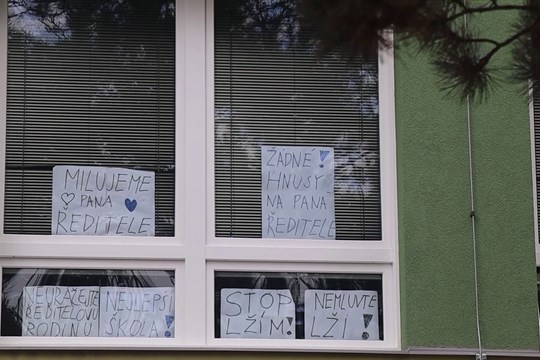 MILUJEME
♡ PANA ♥
ŘEDITELE
ŽÁDNÉ!
HNUSY
NA PANA
ŘEDITELE
NEURÁŽEJTE
ŘEDITELOVU
RODINU
NEJLEPŠÍ
ŠKOLA!
STOP
LŽÍM!
NEMLUVTE
LŽI!